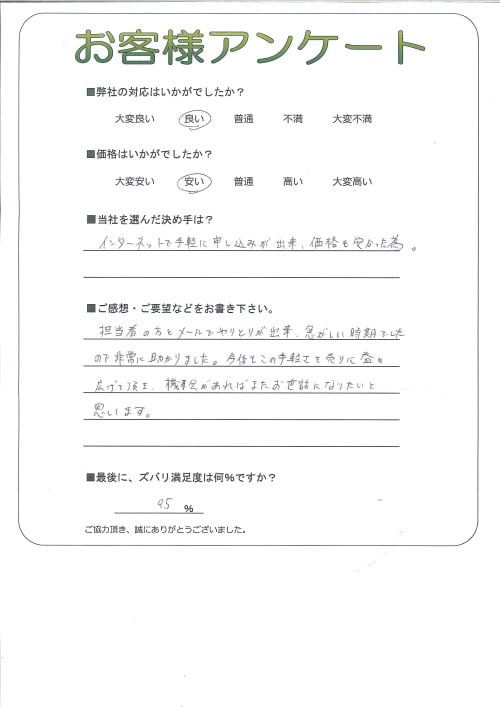 お客様アンケート
■弊社の対応はいかがでしたか？
大変良い 良い 普通 不満 大変不満
■価格はいかがでしたか？
大変安い 安い 普通 高い 大変高い
■当社を選んだ決め手は？
インターネットで手軽に申し込みが出来、価格も安かった為。
■ご感想・ご要望などをお書き下さい。
担当者の方とメールでやりとりが出来、忙がしい時期でした
ので非常に助かりました。今後もこの手軽さを売りに益々
広げて頂き、機会があればまたお世話になりたいと
思います。
■最後に、ズバリ満足度は何％ですか？
95 %
ご協力頂き、誠にありがとうございました。